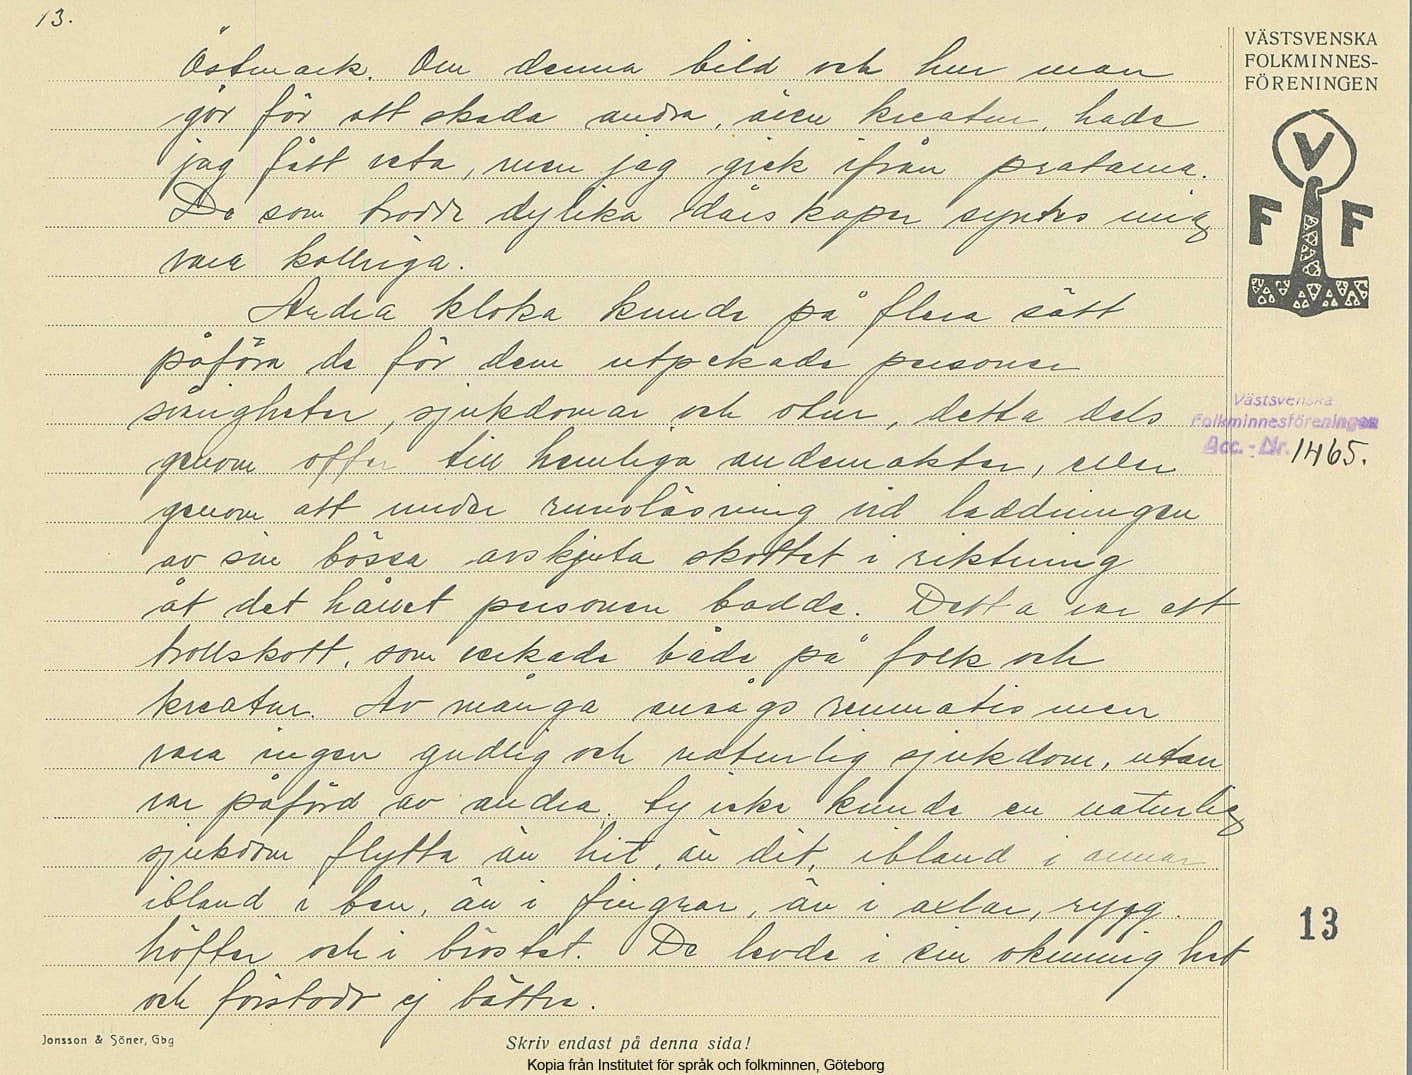 13.
Östmark. Om denna bild och hur man
gör för att skada andra, även kreatur, hade
jag fått veta, men jag gick ifrån pratarna.
De som trodde dylika dårskaper syntes mig
vara kolliga.
Andra kloka kunde på flera sätt
påföra de för dem utpekade personer
svårigheter, sjukdomar och otur, detta dels
genom offer till hemliga andemakter, eller
genom att under runoläsning vid laddningen
av sin bössa avskjuta skottet i riktning
åt det hållet personen bodde. Detta var ett
trollskott, som verkade både på folk och
kreatur. Av många ansågs reumatismen
vara ingen gudlig och naturlig sjukdom, utan
var påförd av andra, ty icke kunde en naturlig
sjukdom flytta än hit, än dit, ibland i armar
ibland i ben, än i fingrar, än i axlar, rygg.
höfter och i bröstet. De levde i sin okunnighet
och förstodo ej bättre.
VÄSTSVENSKA
FOLKMINNES-
FÖRENINGEN
V
F F
Västsvenska
Folkminnesföreningen
Acc.-Nr. 1465.
13
Jonsson & Söner, Gbg
Skriv endast på denna sida!
Kopia från Institutet för språk och folkminnen, Göteborg